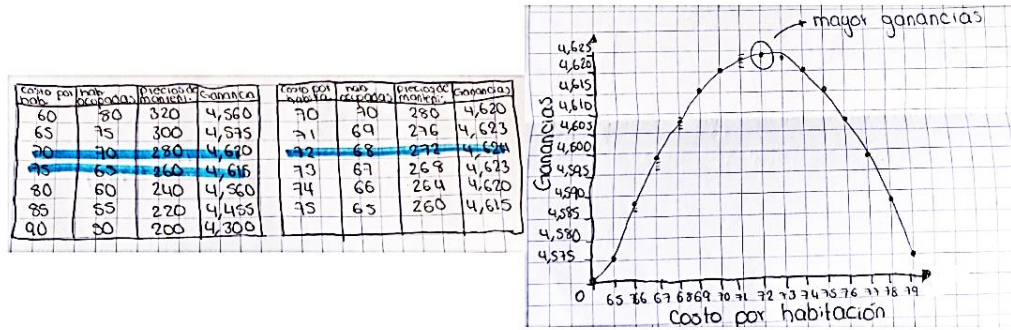 costo por hab. hab ocupadas precios de manteni. Ganancia
60 80 320 4,560
65 75 300 4,575
70 70 280 4,620
75 65 260 4,615
80 60 240 4,560
85 55 220 4,455
90 50 200 4,300
costo por habita. hab ocupadas precios de manteni. Ganancias
70 70 280 4,620
71 69 276 4,623
72 68 272 4,624
73 67 268 4,623
74 66 264 4,620
75 65 260 4,615
mayor ganancias
Ganancias
4,625
4,620
4,615
4,610
4,605
4,600
4,595
4,590
4,585
4,580
4,575
0 65 66 67 68 69 70 71 72 73 74 75 76 77 78 79
Costo por habitación